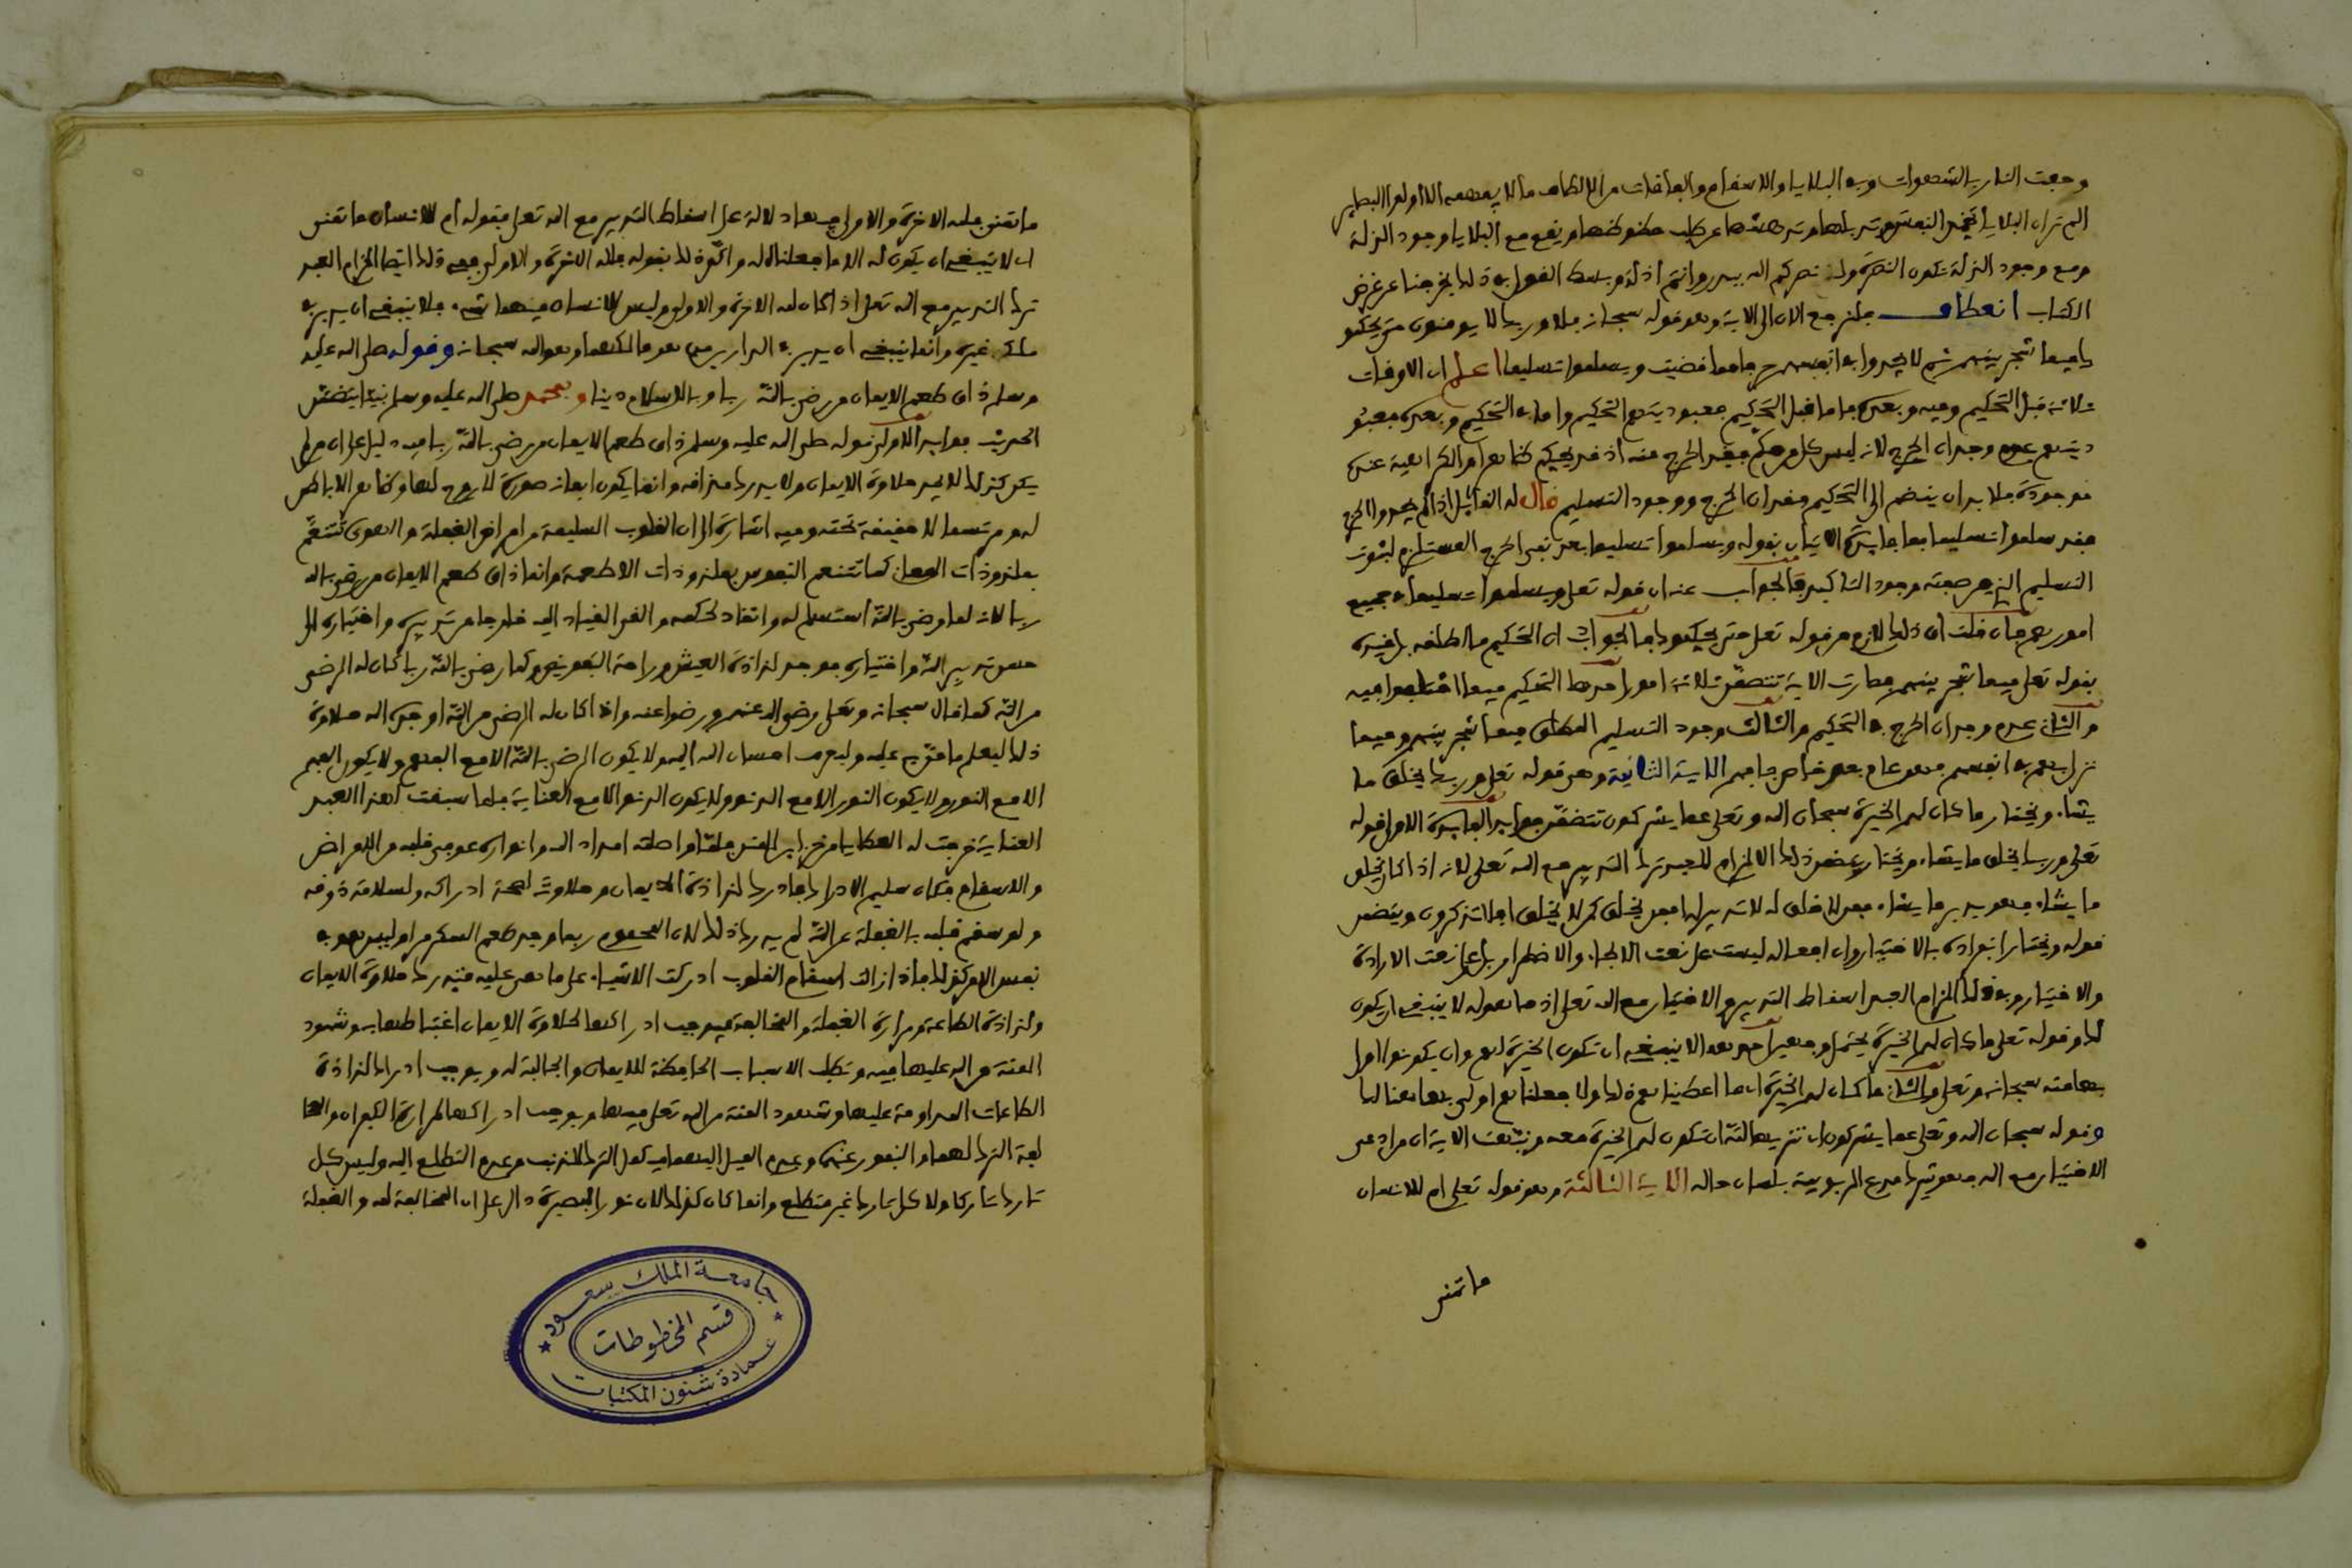 وحفت النار بالشهوات وفي البلايا والاسقام والفاقات من الالطاف ما لا يفهمه الا اولوا البصاير
الم تر ان البلايا تخمد النفس وتذلها وتدهشها عن طلب حظوظها ويقع مع البلايا وجود الذلة
ومع وجود الذلة تكون النصرة ولقد نصركم الله ببدر وانتم اذلة وبسط القول في ذلك يخرجنا عن غرض
الكتاب انعطاف فلنرجع الان الى الاية وهو قوله سبحانه فلا وربك لا يومنون حتى يحكموك
فيما شجر بينهم ثم لا يجدوا في انفسهم حرجا مما قضيت ويسلموا تسليما اعلم ان الاوقات
ثلاثة قبل التحكيم وفيه وبعده فاما قبل التحكيم فعبوديتهم التحكيم واما في التحكيم وبعده فعبو
ديتهم عدم وجدان الحرج لانه ليس كل من حكم فقد الحرج منه اذ قد يحكم ظاهرا والكراهية عنده
موجودة فلا بد ان ينضم الى التحكيم فقدان الحرج ووجود التسليم قال له القايل اذا لم يجدوا الحرج
فقد سلموا تسليما فما فايدة الاتيان بقوله ويسلموا تسليما بعد نفي الحرج المستلزم لثبوت
التسليم الذي من صفته وجود التاكيد فالجواب عنه ان قوله تعلى ويسلموا تسليما في جميع
امورهم فان قلت ان ذلك لازم من قوله تعلى حتى يحكموك فالجواب ان التحكيم ما اطلقه بل قيده
بقوله تعلى فيما شجر بينهم فصارت الاية تتضمن ثلاثة امور احدها التحكيم فيما اختلفوا فيه
والثاني عدم وجدان الحرج في التحكيم والثالث وجود التسليم المطلق فيما شجر بينهم وفيما
نزل بهم في انفسهم فهو عام بعد خاص فافهم الاية الثانية وهي قوله تعلى وربك يخلق ما
يشاء ويختار ما كان لهم الخيرة سبحان الله وتعلى عما يشركون تتضمن فوايد الفايدة الاولى قوله
تعلى وربك يخلق ما يشاء ويختار يتضمن ذلك الالزام للعبد ترك التدبير مع الله تعلى لانه اذا كان يخلق
ما يشاء فهو يدبر ما يشاء فمن لا خلق له لا تدبير له افمن يخلق كمن لا يخلق افلا تذكرون ويتضمن
قوله ويختار انفراده بالاختيار وان افعاله ليست على نعت الالجاء والاضطرار بل على نعت الارادة
والاختيار وفي ذلك الزام العبد اسقاط التدبير والاختيار مع الله تعلى اذ ما هو له لا ينبغي ان يكون
لك وقوله تعلى ما كان لهم الخيرة يحتمل وجهين احدهما لا ينبغي ان تكون الخيرة لهم وان يكونوا اولى
بها منه سبحانه وتعلى والثاني ما كان لهم الخيرة اي ما اعطيناهم ذلك ولا جعلناهم اولى بما هنالك
وقوله سبحان الله وتعلى عما يشركون اي تنزيها لله ان تكون لهم الخيرة معه وبينت الاية ان من ادعى
الاختيار مع الله فهو مشرك مدع الربوبية بلسان حاله الاية الثالثة وهو قوله تعلى ام للانسان
ما تمنى
ما تمنى فلله الاخرة والاولى فيها دلالة على اسقاط التدبير مع الله تعلى بقوله ام للانسان ما تمنى
اي لا ينبغي ان يكون له الا ما جعلنا له واكد ذلك بقوله فلله الاخرة والاولى ففي ذلك ايضا الزام العبد
ترك التدبير مع الله تعلى اذا كان لله الاخرة والاولى وليس للانسان فيهما شيء فلا ينبغي ان يدبر في
ملك غيره وانما ينبغي ان يدبر في الدارين من هو مالكهما وهو الله سبحانه وقوله صلى الله عليه
وسلم ذاق طعم الايمان من رضي بالله ربا وبالاسلام دينا وبمحمد صلى الله عليه وسلم نبيا يتضمن
الحديث فوايد الاولى قوله صلى الله عليه وسلم ذاق طعم الايمان من رضي بالله ربا فيه دليل على ان من لم
يكن كذلك لا يجد حلاوة الايمان ولا يدرك مذاقه وانما يكون ايمانه صورة لا روح لها وظاهرا لا باطن
له ومرتسما لا حقيقة تحته وفيه اشارة الى ان القلوب السليمة من امراض الغفلة والهوى تتنعم
بملذوذات المعاني كما تتنعم النفوس بملذوذات الاطعمة وانما ذاق طعم الايمان من رضي بالله
ربا لانه لما رضي بالله استسلم له وانقاد لحكمه والقى القياد اليه خارجا من تدبيره واختياره الى
حسن تدبير الله واختياره فوجد لذاذة العيش وراحة التفويض ولما رضي بالله ربا كان له الرضى
من الله كما قال سبحانه وتعلى رضي الله عنهم ورضوا عنه واذا كان له الرضى من الله اوجده الله حلاوة
ذلك ليعلم ما من به عليه وليعرف احسان الله اليه ولا يكون الرضى بالله الا مع الفهم ولا يكون الفهم
الا مع النور ولا يكون النور الا مع الدنو ولا يكون الدنو الا مع العناية فلما سبقت لهذا العبد
العناية خرجت له العطايا من خزاين المنن فلما واصلته امداد الله وانواره عوفي قلبه من الامراض
والاسقام فكان سليم الادراك فادرك لذاذة الايمان وحلاوته لصحة ادراكه ولسلامة ذوقه
ولو سقم قلبه بالغفلة عن الله لم يدرك ذلك لان المحموم ربما وجد طعم السكر مرا وليس هو في
نفس الامر كذلك فاذا زالت اسقام القلوب ادركت الاشياء على ما هي عليه فتدرك حلاوة الايمان
ولذاذة الطاعة ومرارة الغفلة والمخالفة فيوجب ادراكها لحلاوة الايمان اغتباطها به وشهود
المنة من الله عليها فيه وتطلب الاسباب الحافظة للايمان والجالبة له ويوجب ادراك لذاذة
الطاعات المداومة عليها وشهود المنة من الله تعلى فيها ويوجب ادراكها لمرارة الكفران والمخا
لفة الترك لهما والنفور عنهما وعدم الميل اليهما فيحمل الترك للذنب وعدم التطلع اليه وليس كل
تارك تاركا ولا كل تارك غير متطلع وانما كان كذلك لان نور البصيرة دال على ان المخالفة لله والغفلة
جامعة الملك سعود
قسم المخطوطات
عمادة شئون المكتبات